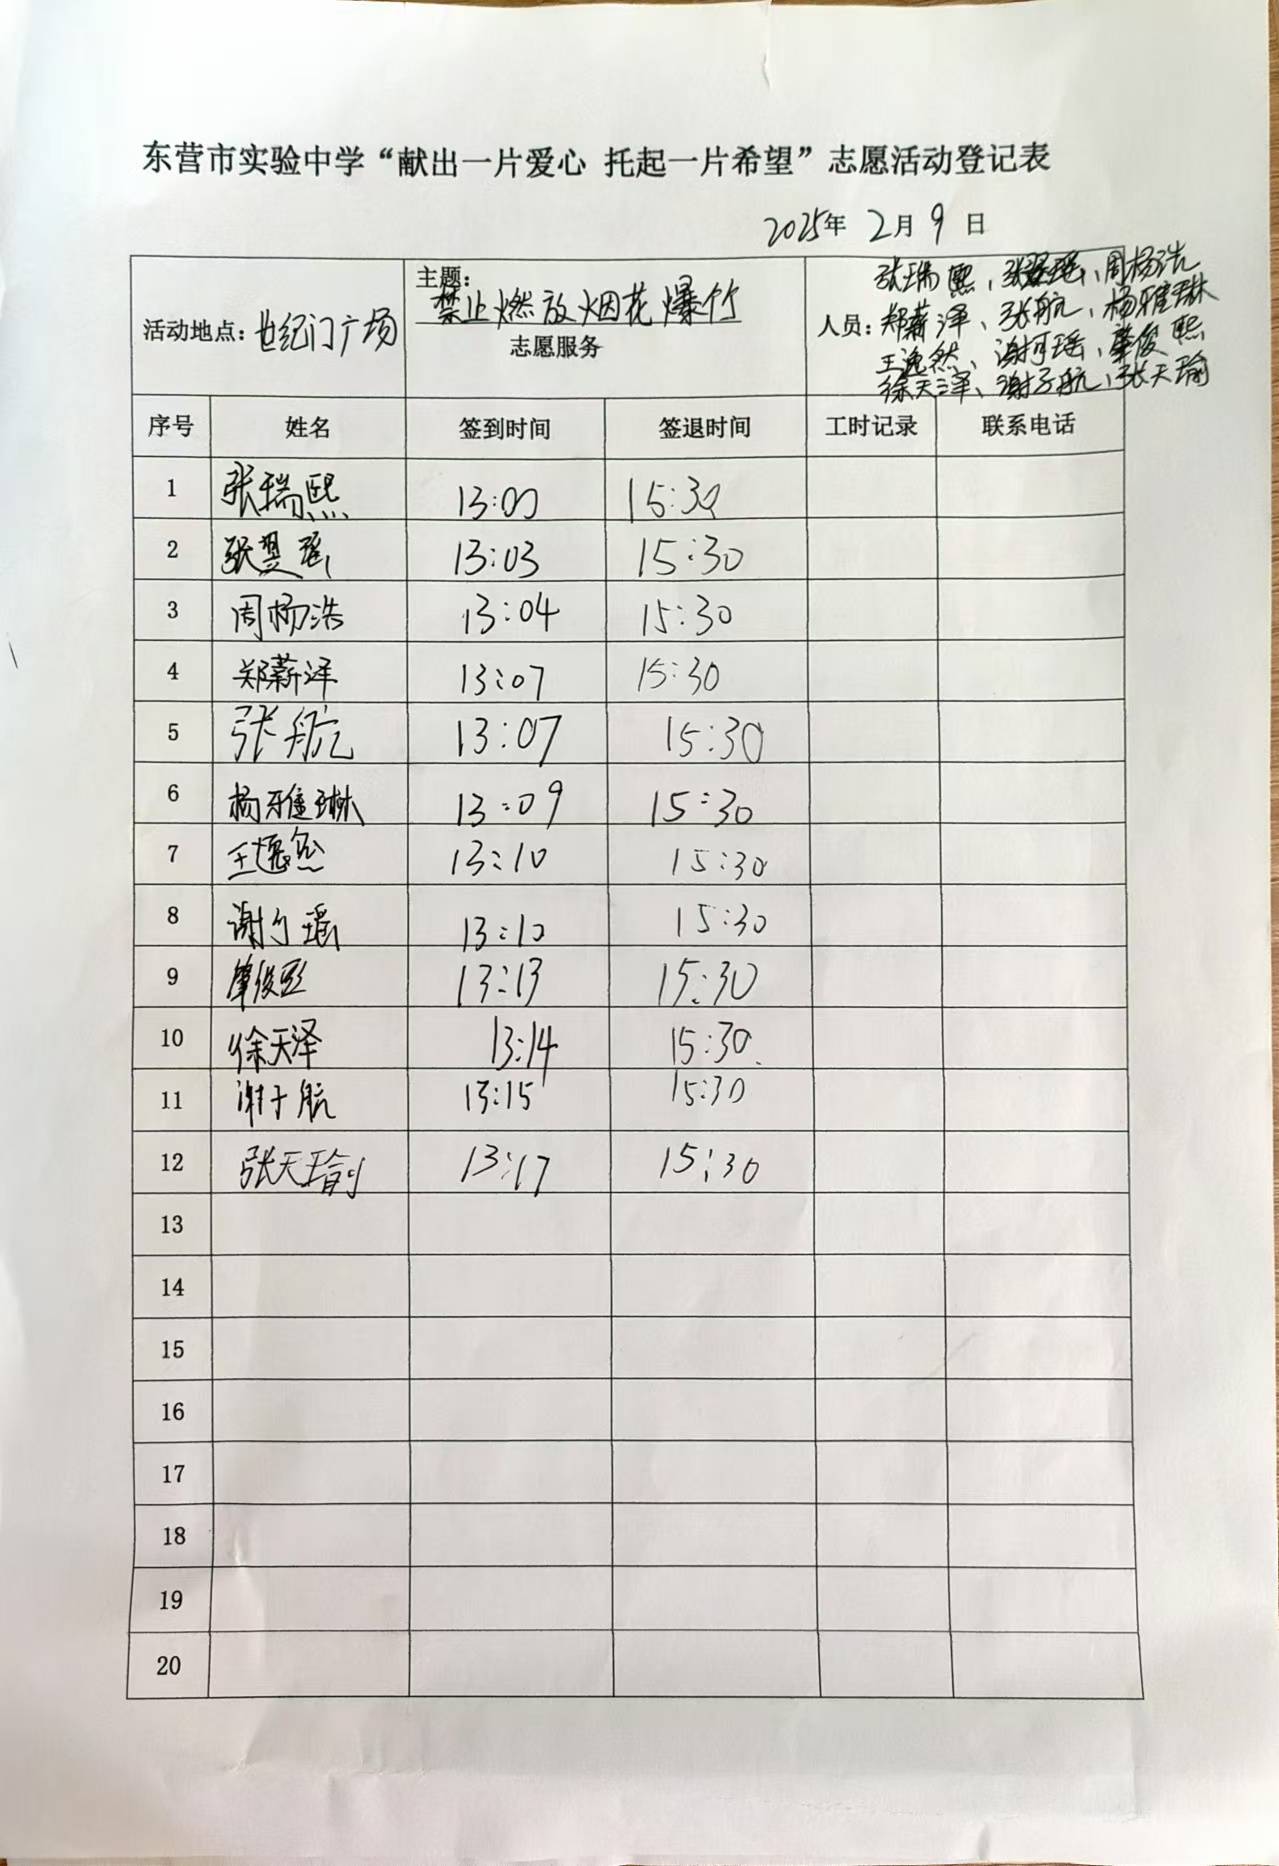 东营市实验中学“献出一片爱心 托起一片希望”志愿活动登记表
2025年 2月 9 日
活动地点：世纪门广场
主题：
禁止燃放烟花爆竹
志愿服务
张瑞熙、张翌瑶、周杨浩
人员：郑薪泽、张航、杨雅琳
王逸然、谢可瑶、肇俊熙
徐天泽、谢子航、张天瑜
序号 姓名 签到时间 签退时间 工时记录 联系电话
1 张瑞熙 13:00 15:30
2 张翌瑶 13:03 15:30
3 周杨浩 13:04 15:30
4 郑薪泽 13:07 15:30
5 张航 13:07 15:30
6 杨雅琳 13:09 15:30
7 王逸然 13:10 15:30
8 谢可瑶 13:10 15:30
9 肇俊熙 13:13 15:30
10 徐天泽 13:14 15:30
11 谢子航 13:15 15:30
12 张天瑜 13:17 15:30
13
14
15
16
17
18
19
20